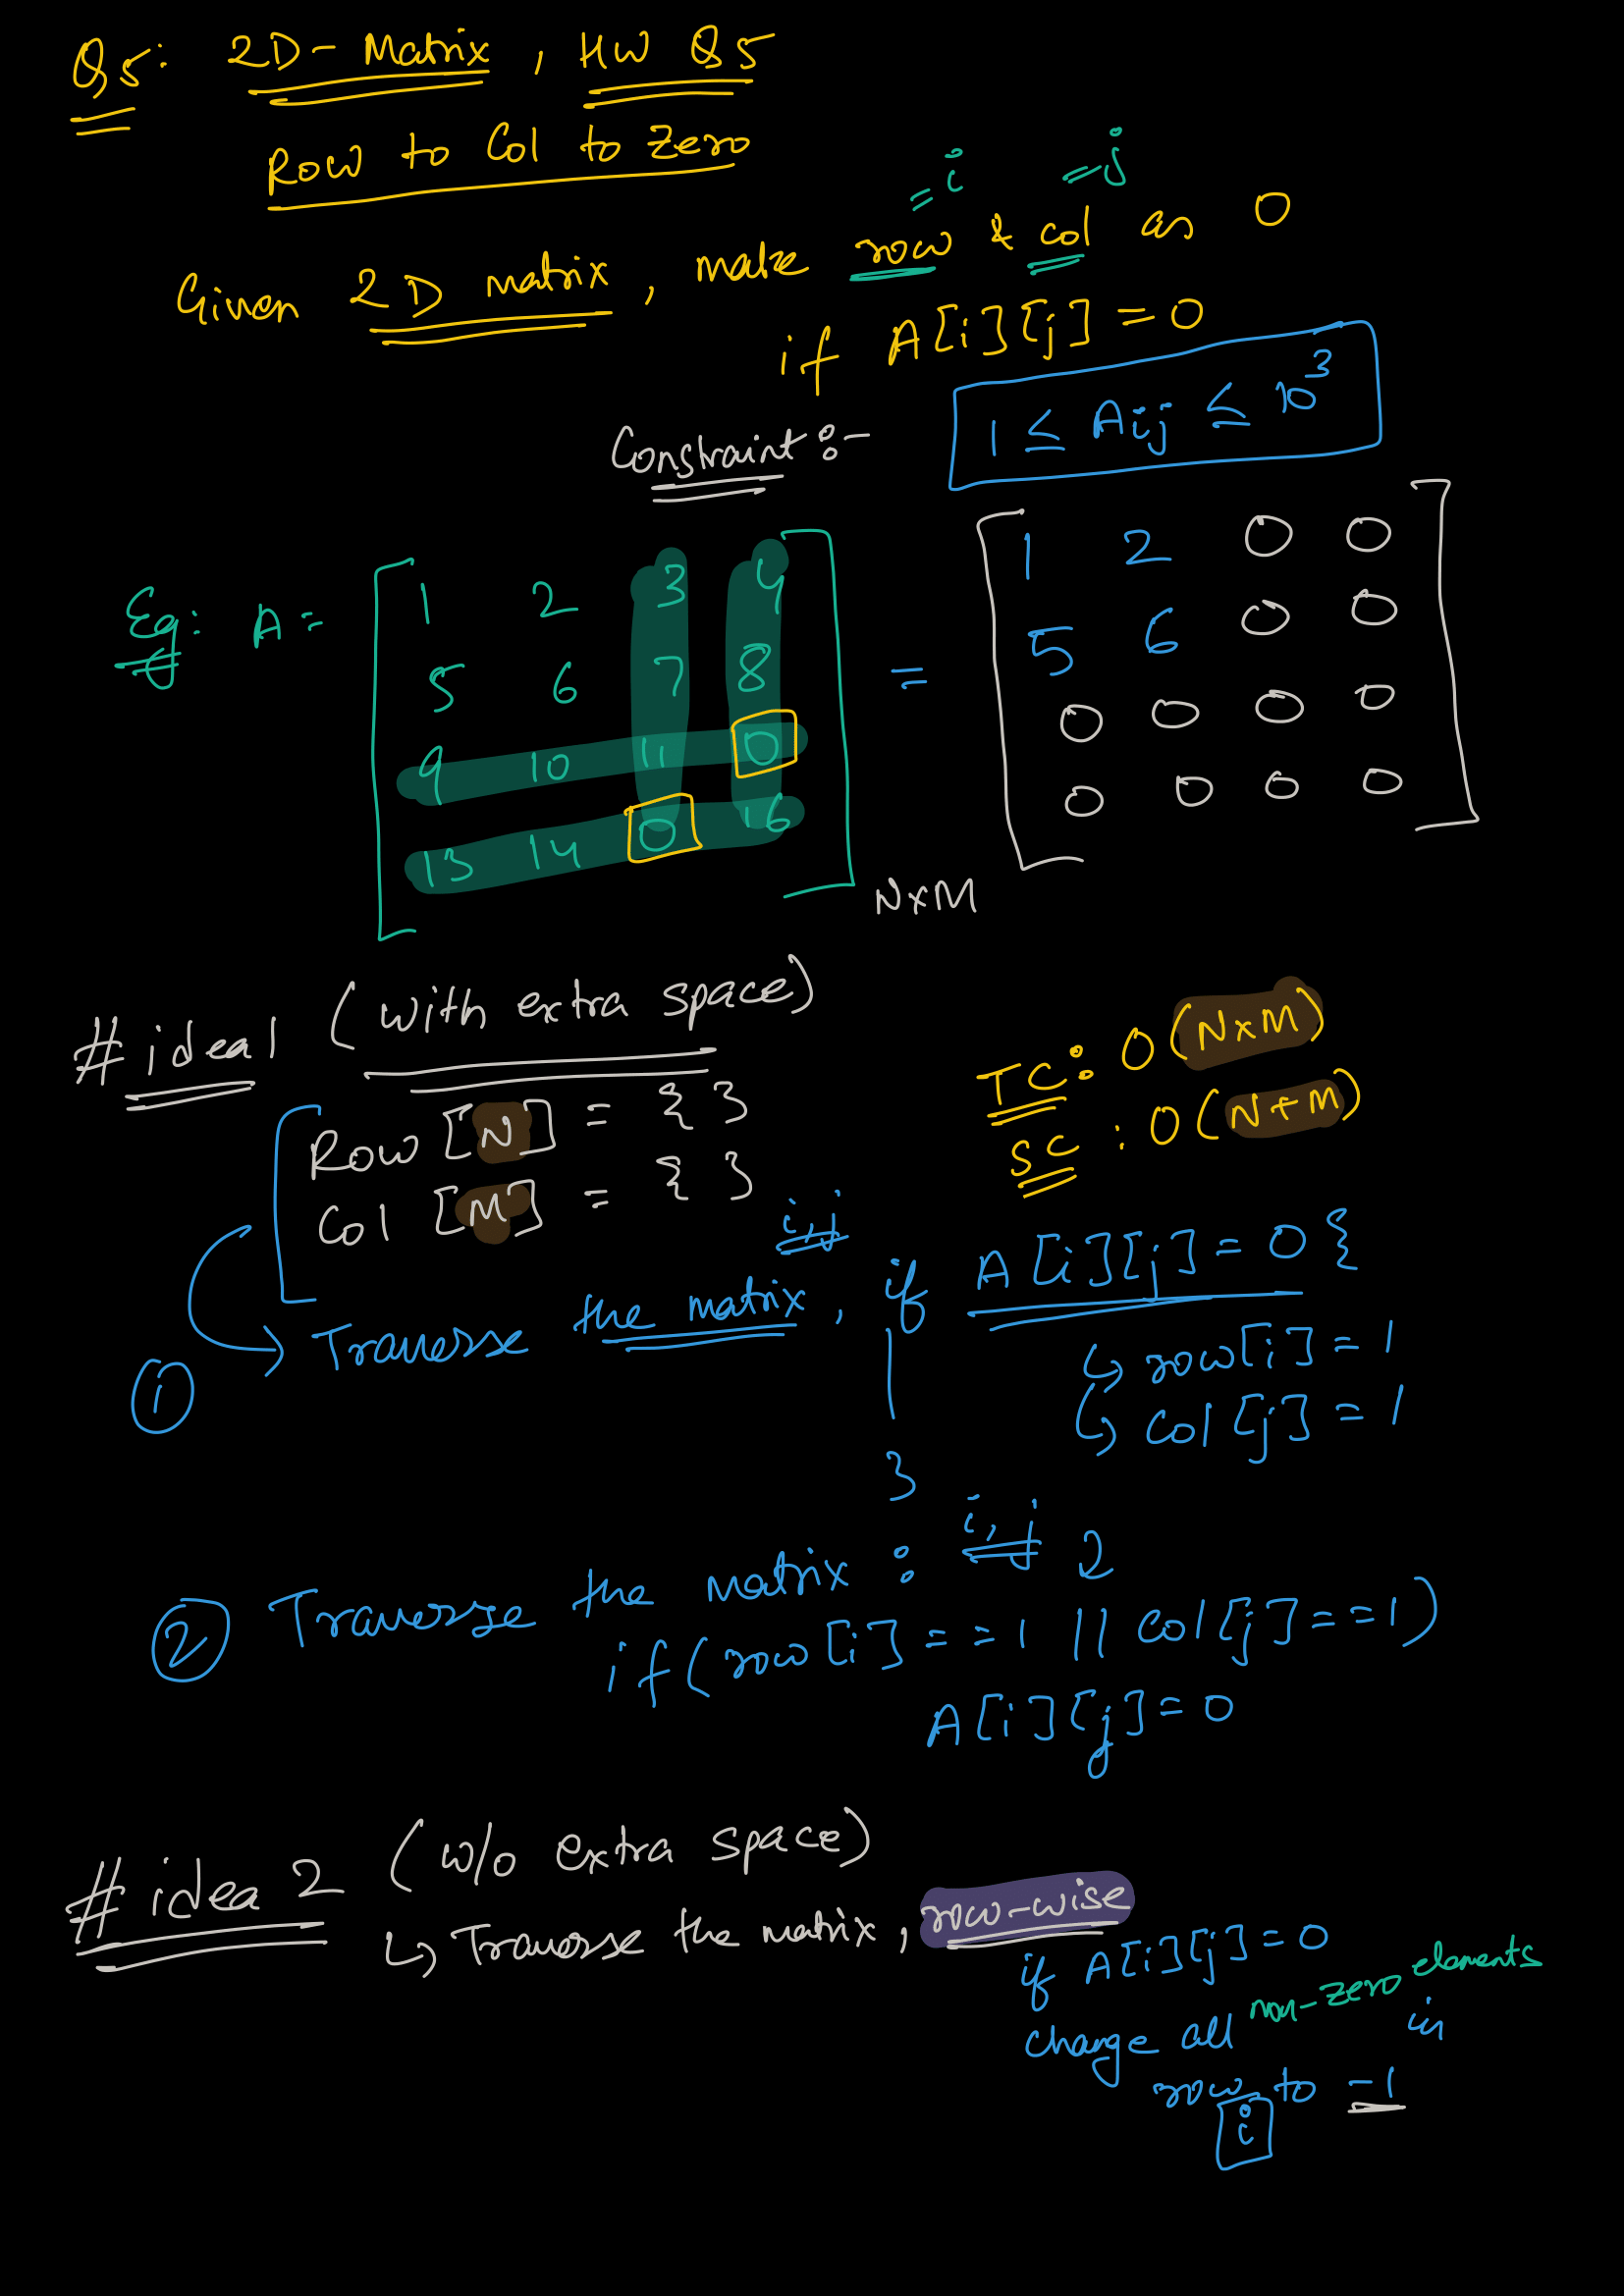 Q5: 2D-Matrix, HW Q5
Row to Col to Zero
=i =j
Given 2D matrix, make row & col as 0
if A[i][j]=0
Constraint:- 1 ≤ Aij ≤ 10³
Eg: A =
1 2 3 4
5 6 7 8
9 10 11 0
13 14 0 16
NxM
=
1 2 0 0
5 6 0 0
0 0 0 0
0 0 0 0
# idea1 (with extra space)
TC: O(NxM)
SC: O(N+M)
Row [N] = { }
Col [M] = { }
i,j
① → Traverse the matrix, if A[i][j]=0{
↳ row[i]=1
↳ col[j]=1
}
② Traverse the matrix: i,j 2
if(row[i]==1 || col[j]==1)
A[i][j]=0
# idea 2 (w/o extra space)
↳ Traverse the matrix, row-wise
if A[i][j]=0
change all non-zero elements in
row to -1
i